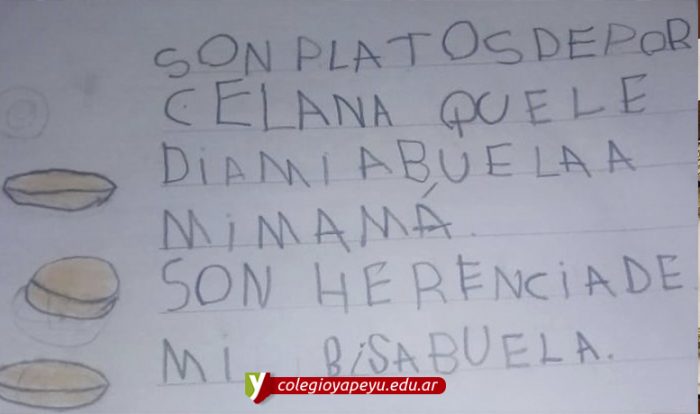 SON PLATOS DE POR
CELANA QUE LE
DIA MI ABUELA A
MI MAMÁ.
SON HERENCIA DE
MI BISABUELA.
colegioyapeyu.edu.ar